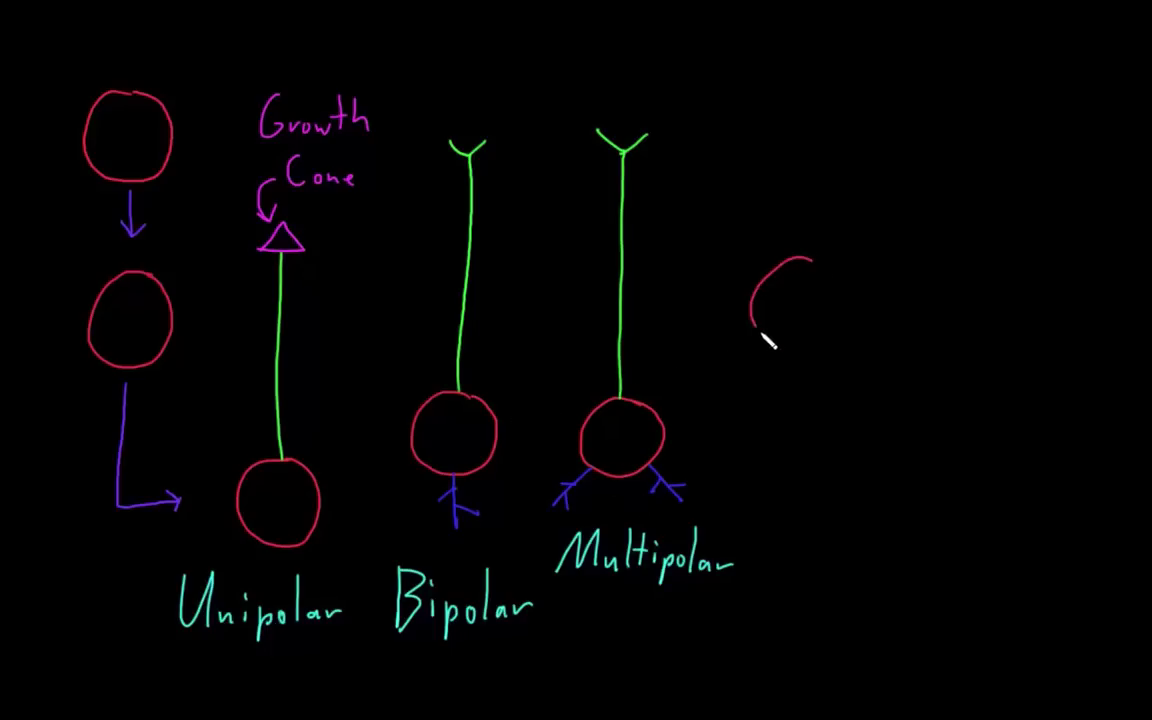 Growth
Cone
Unipolar
Bipolar
Multipolar